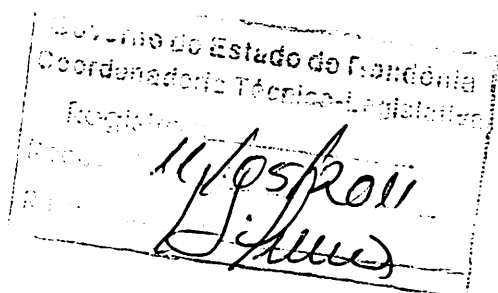 Governo do Estado de Rondônia
Coordenadoria Técnico-Legislativa
Registro
11/05/2011